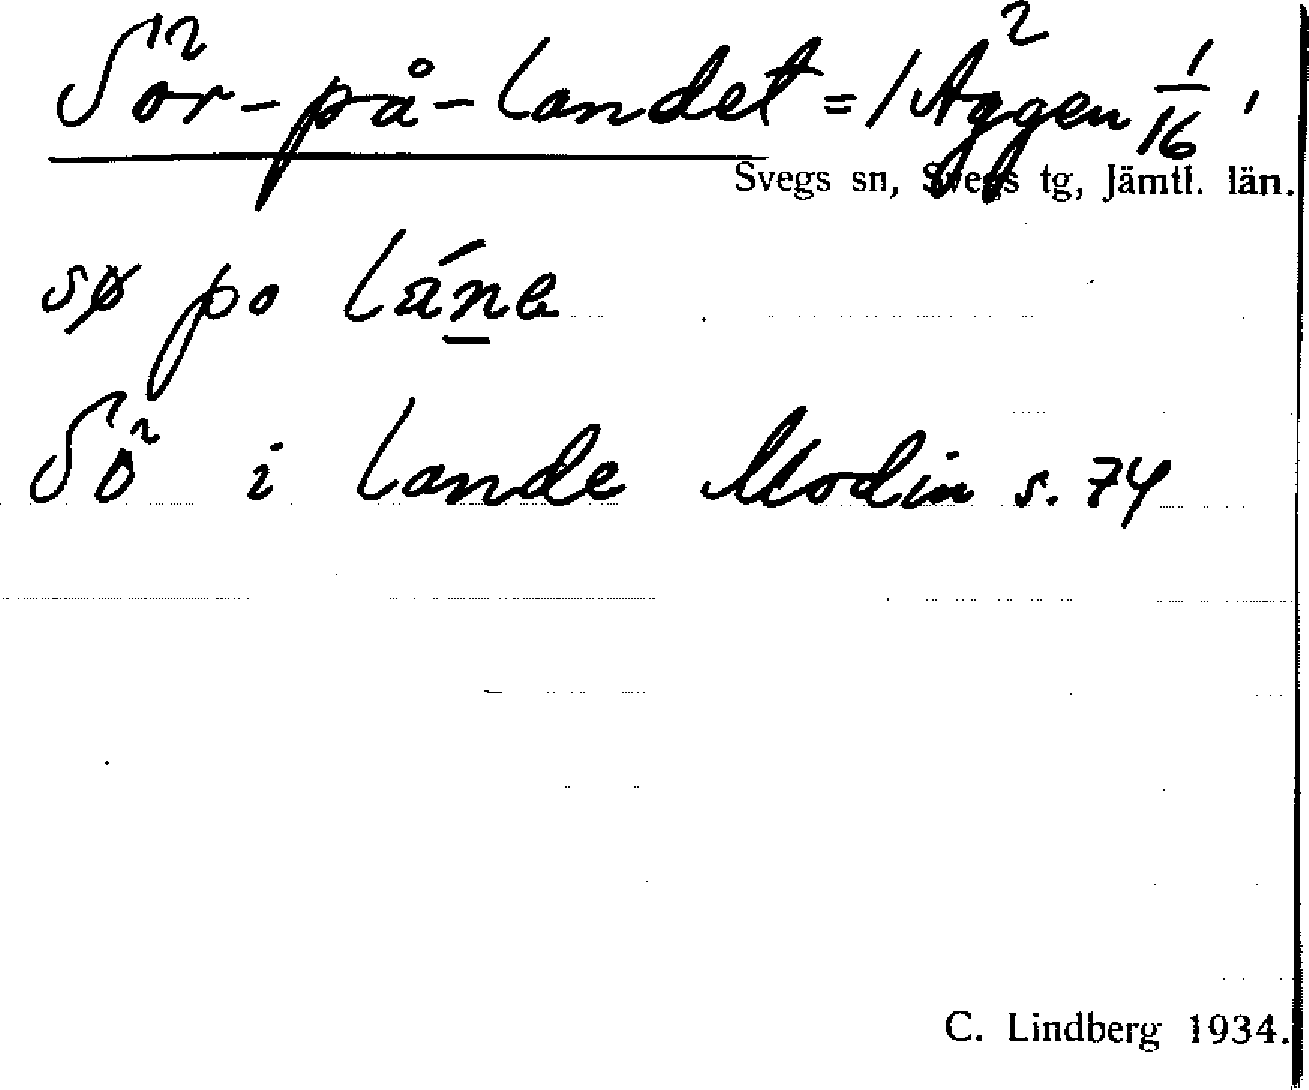 Sör-på-landet = / Äggen 1/16 '
Svegs sn, Svegs tg, Jämtl. län.
sø po láne
Sö i lande Modin s. 74
C. Lindberg 1934.